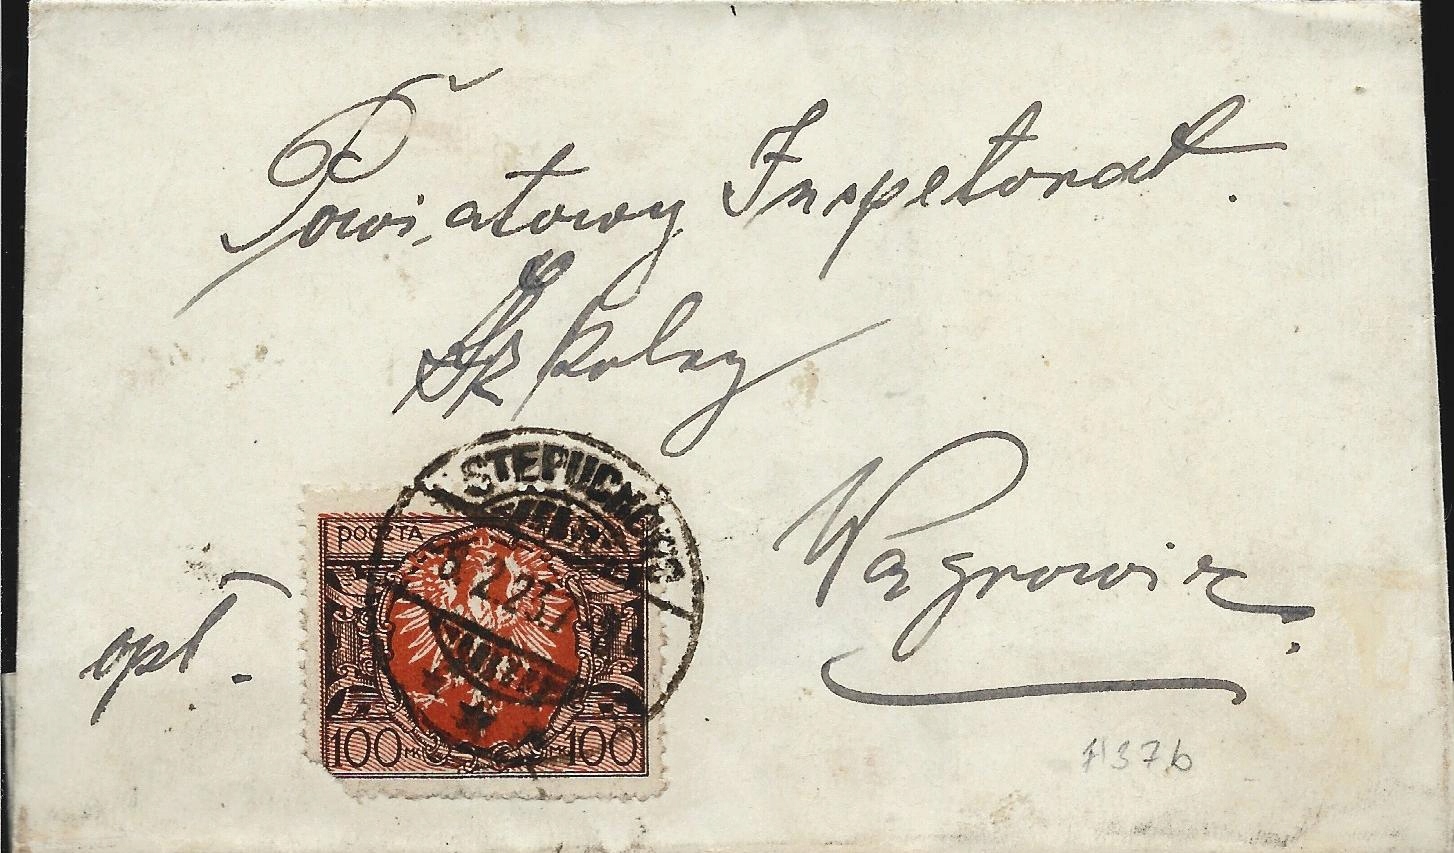 Powiatowy Inspetorat.
Szkolny
Wągrowiec.
opł.
STEPUCHOWO
POCZTA
8.2.23.
100 MK MK 100
A137b